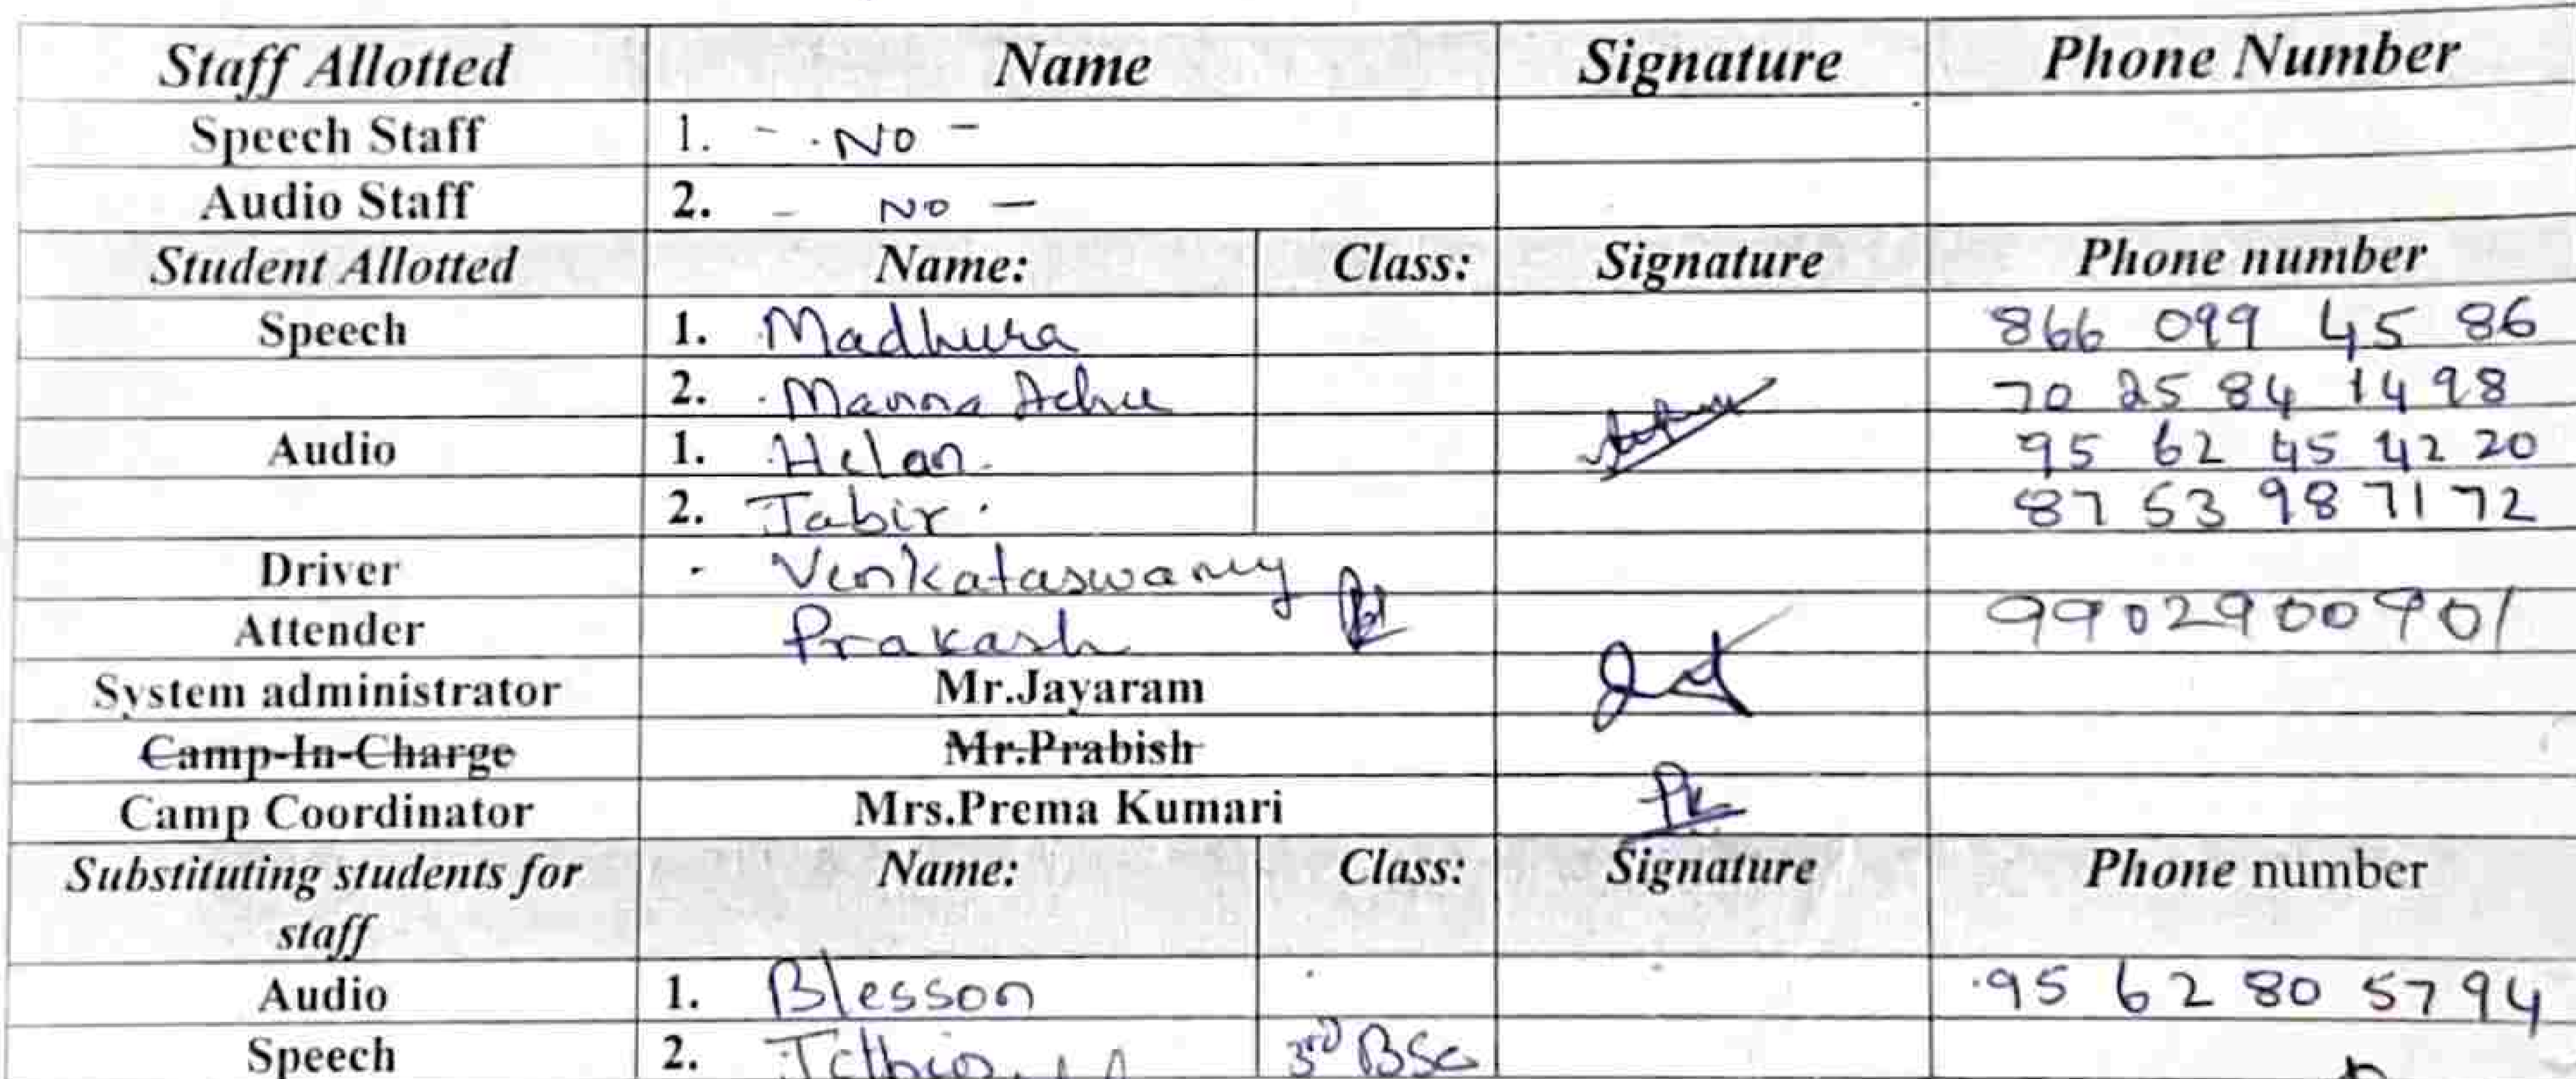 Staff Allotted Name Signature Phone Number
Speech Staff 1. - NO -
Audio Staff 2. - NO -
Student Allotted Name: Class: Signature Phone number
Speech 1. Madhura 866 099 45 86
2. Manna Achu 70 25 84 1498
Audio 1. Helan. 95 62 45 42 20
2. Jabir. 87 53 98 71 72
Driver - Venkataswamy
Attender Prakash 9902900901
System administrator Mr.Jayaram
Camp-In-Charge Mr.Prabish
Camp Coordinator Mrs.Prema Kumari
Substituting students for Name: Class: Signature Phone number
staff
Audio 1. Blesson 95 62 80 5794
Speech 2. 3rd BSc